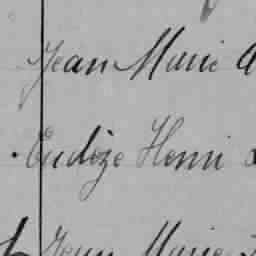 Jean Marie
Eudèze Henri
Jean Marie